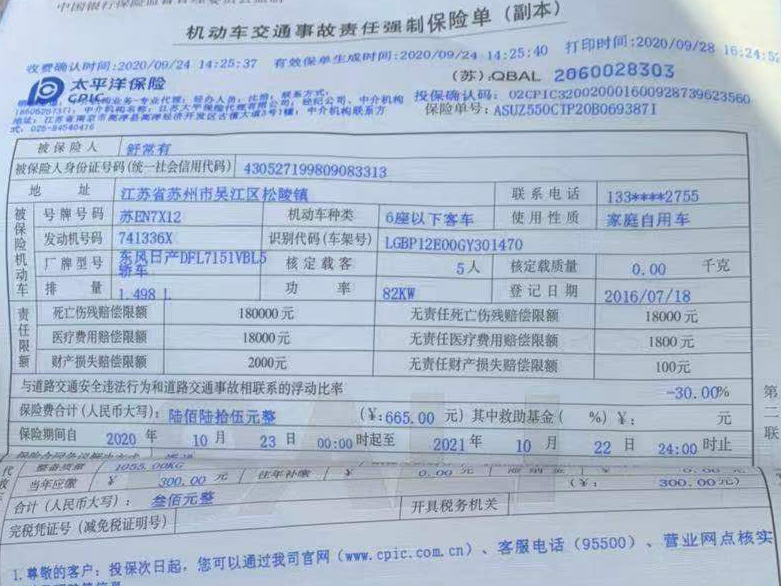 机动车交通事故责任强制保险单（副本）
收费确认时间:2020/09/24 14:25:37 有效保单生成时间:2020/09/24 14:25:40 打印时间:2020/09/28 16:24:5
(苏):QBAL 2060028303
太平洋保险
CPIC
投保确认码: 02CPIC320020001600928739623560
保险单号: ASUZ550CTP20B0693871
被保险人 舒常有
被保险人身份证号码(统一社会信用代码) 430527199809083313
地址 江苏省苏州市吴江区松陵镇 联系电话 133****2755
被保险机动车
号牌号码 苏EN7X12 机动车种类 6座以下客车 使用性质 家庭自用车
发动机号码 741336X 识别代码(车架号) LGBP12E00GY301470
厂牌型号 东风日产DFL7151VBL5轿车 核定载客 5人 核定载质量 0.00 千克
排量 1.498 L 功率 82KW 登记日期 2016/07/18
责任限额
死亡伤残赔偿限额 180000元 无责任死亡伤残赔偿限额 18000元
医疗费用赔偿限额 18000元 无责任医疗费用赔偿限额 1800元
财产损失赔偿限额 2000元 无责任财产损失赔偿限额 100元
与道路交通安全违法行为和道路交通事故相联系的浮动比率 -30.00%
保险费合计(人民币大写): 陆佰陆拾伍元整 (¥:665.00 元)其中救助基金( %)¥: 元
保险期间自 2020 年 10 月 23 日 00:00时起至 2021 年 10 月 22 日 24:00时止
整备质量 1055.00KG
当年应缴 ¥ 300.00 元 往年补缴 ¥ 0.00 元
合计(人民币大写): 叁佰元整 (¥: 300.00元)
完税凭证号(减免税证明号) 开具税务机关
第二联
1.尊敬的客户：投保次日起，您可以通过我司官网(www.cpic.com.cn)、客服电话(95500)、营业网点核实